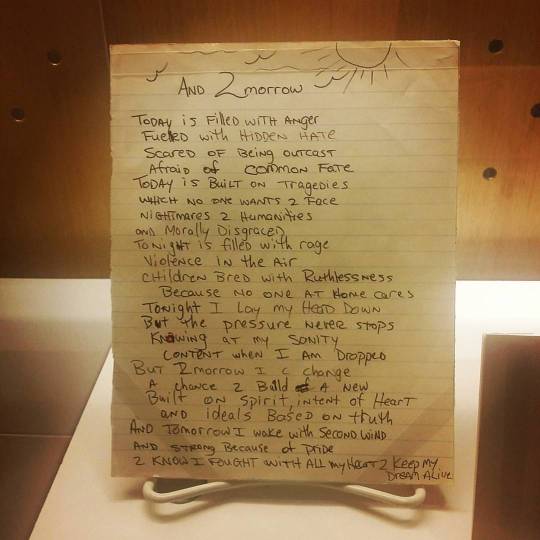 And 2morrow
Today is Filled with Anger
Fueled with Hidden Hate
Scared of Being outcast
Afraid of common Fate
Today is Built on Tragedies
which no one wants 2 Face
Nightmares 2 Humanities
and Morally Disgraced
Tonight is filled with rage
Violence in the Air
Children Bred with Ruthlessness
Because no one at Home cares
Tonight I Lay my Head Down
But the pressure never stops
Knawing at my Sanity
content when I am Dropped
But 2morrow I c change
A chance 2 Build A New
Built on spirit, intent of Heart
and ideals Based on truth
And Tomorrow I wake with Second wind
And strong Because of pride
2 Know I Fought with all my Heart 2 Keep my
Dream Alive